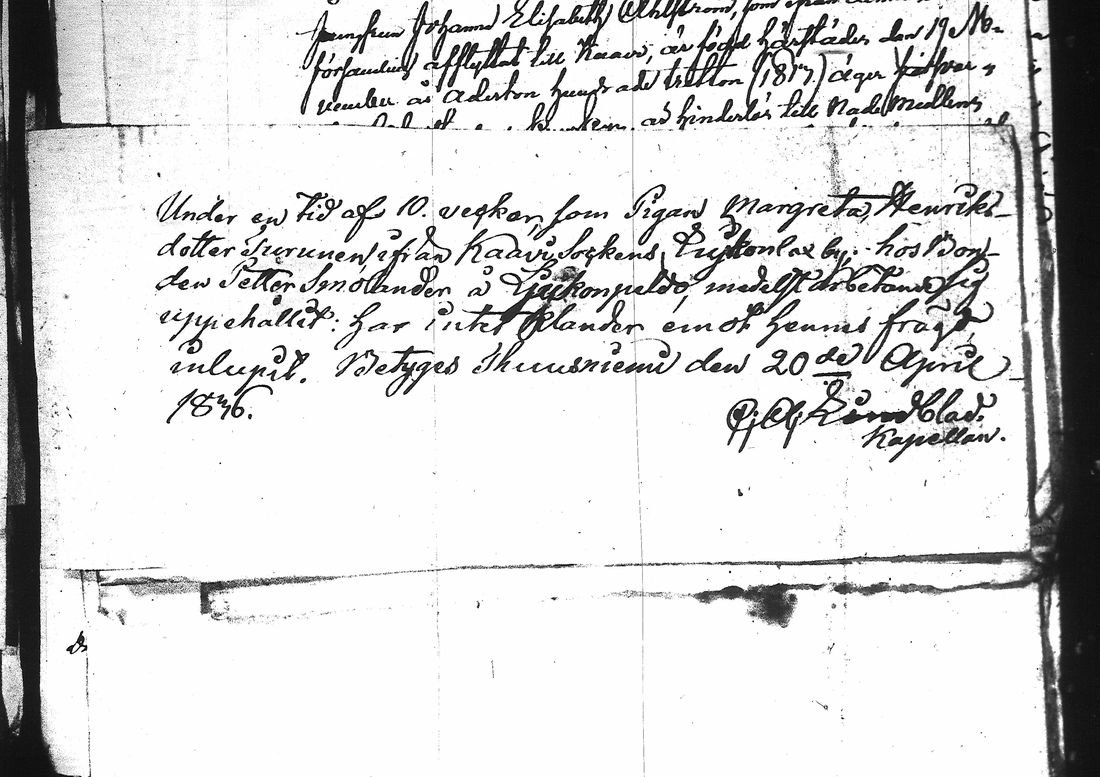 Jungfrun Johanna Elisabeth Ahlström, som
församling afflyttat till Kaavi, är född härstädes den 19 No-
vember år Aderton hundrade tretton (1813) äger
är hinderlös till Nademedlens
Under en tid af 10. veckor, som Pigan Margreta Henriks-
dotter Turunen ifrån Kaavi Sockens, by, hos Bon-
den Petter Smolander å medelst arbetande sig
uppehållit: har intet klander emot hennes frägd
inlupit. Betyges Thuusniemi den 20de April
1836.
Lundblad.
Kapellan.